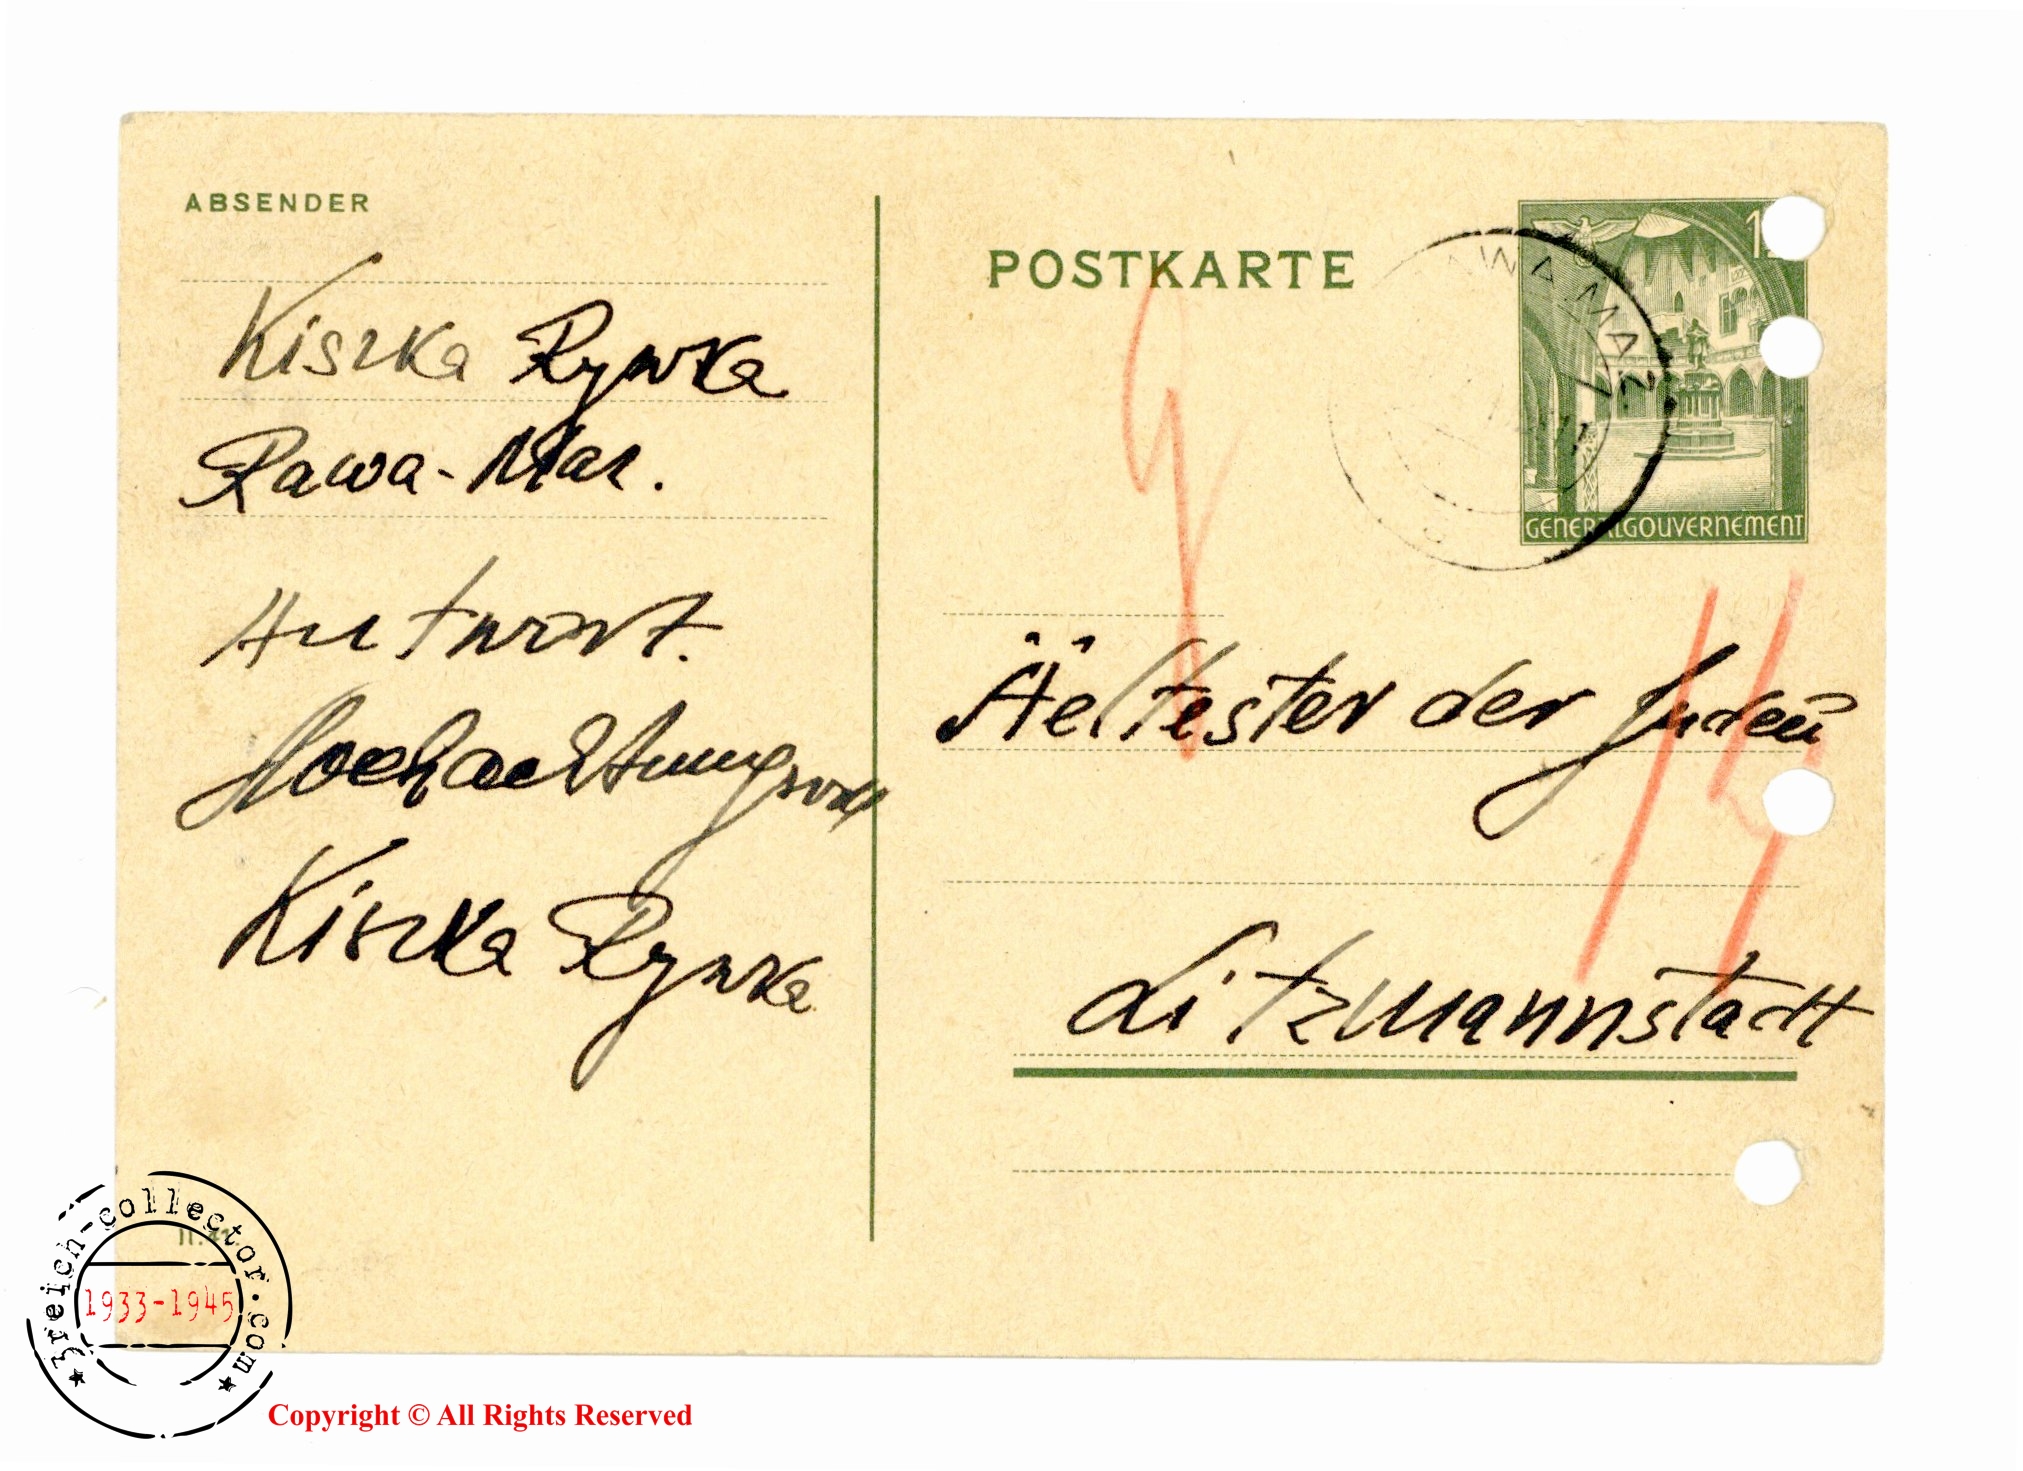 ABSENDER
Kiszka Rywka
Rawa-Maz.
Antwort.
Hochachtungsvoll
Kiszka Rywka
POSTKARTE
GENERALGOUVERNEMENT
Äeltester der Juden
Litzmannstadt
3reich-collector.com
1933-1945
Copyright © All Rights Reserved